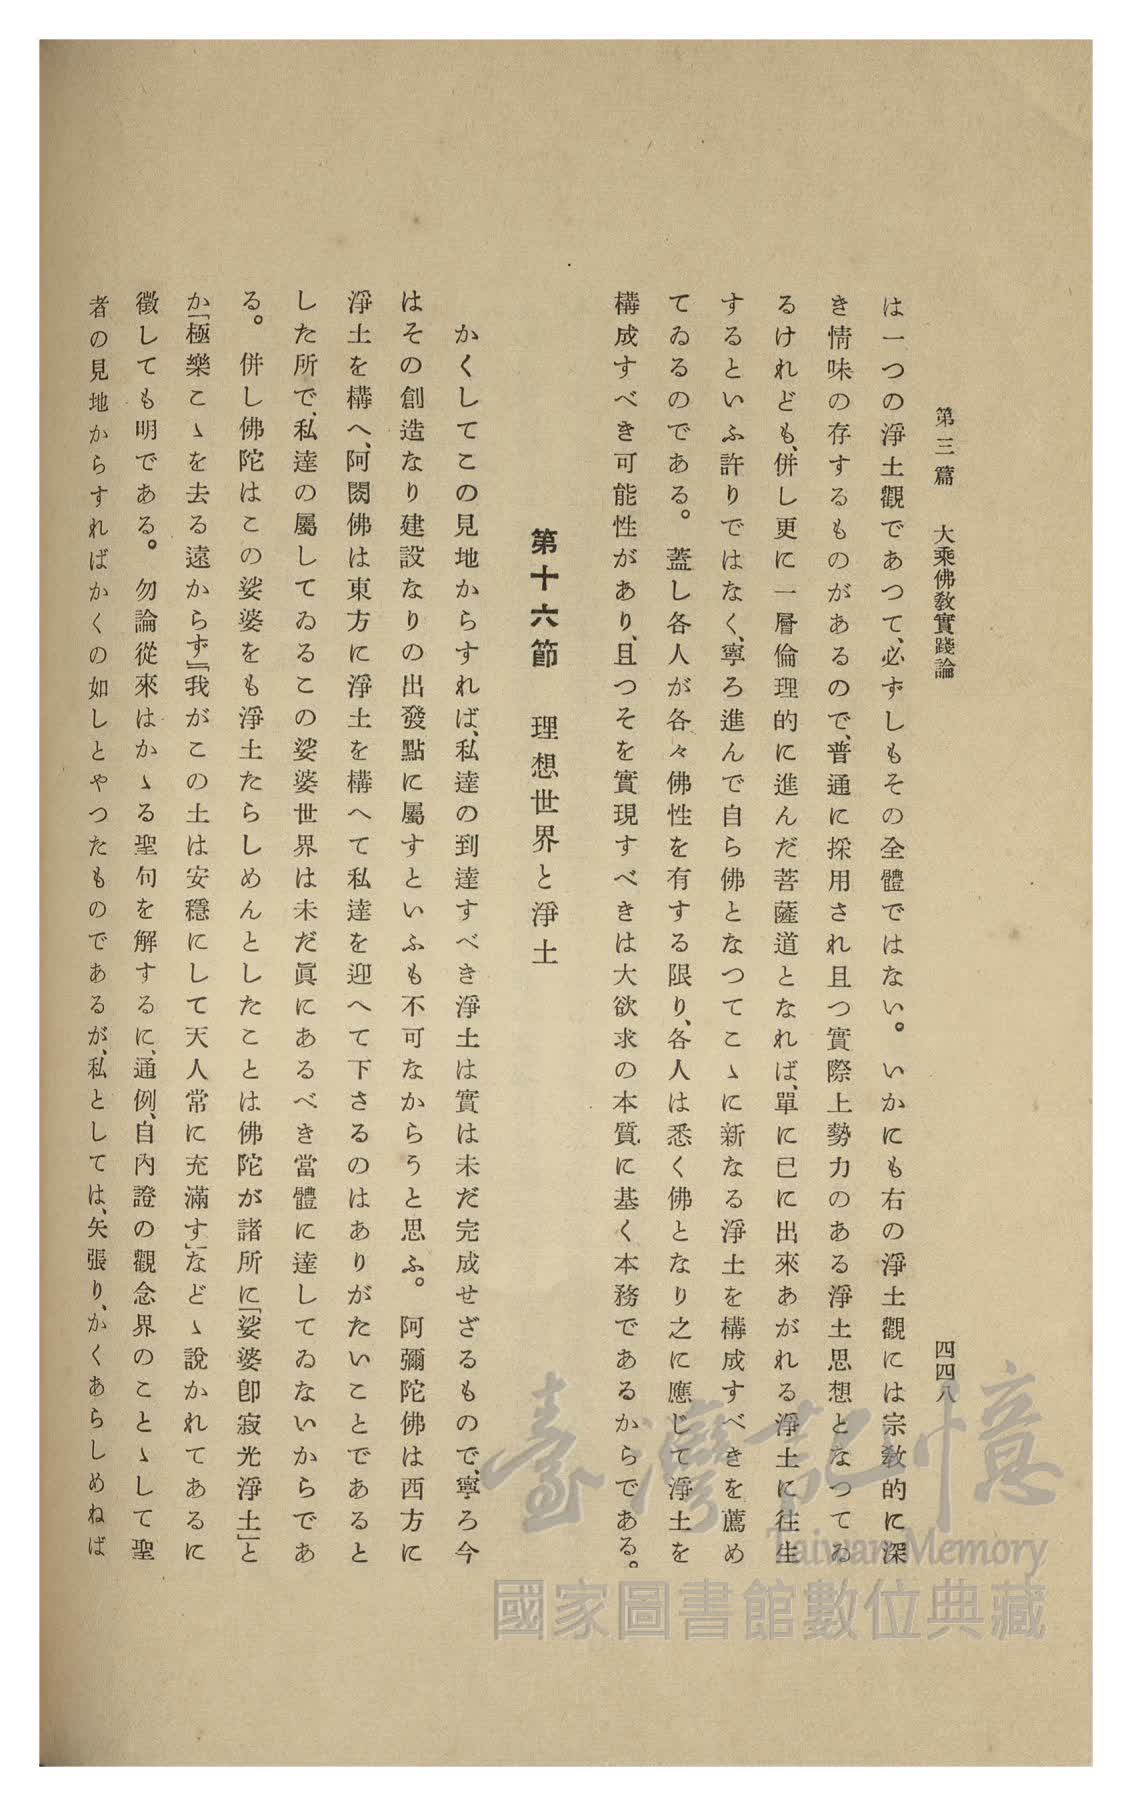 第三篇　大乘佛敎實踐論　四四八
は一つの淨土觀であつて、必ずしもその全體ではない。いかにも右の淨土觀には宗敎的に深
き情味の存するものがあるので、普通に採用され且つ實際上勢力のある淨土思想となつてゐ
るけれども、併し更に一層倫理的に進んだ菩薩道となれば、單に已に出來あがれる淨土に往生
するといふ許りではなく、寧ろ進んで自ら佛となつてこゝに新なる淨土を構成すべきを薦め
てゐるのである。蓋し各人が各々佛性を有する限り、各人は悉く佛となり之に應じて淨土を
構成すべき可能性があり、且つそを實現すべきは大欲求の本質に基く本務であるからである。
第十六節　理想世界と淨土
かくしてこの見地からすれば、私達の到達すべき淨土は實は未だ完成せざるもので、寧ろ今
はその創造なり建設なりの出發點に屬すといふも不可なからうと思ふ。阿彌陀佛は西方に
淨土を構へ、阿閦佛は東方に淨土を構へて私達を迎へて下さるのはありがたいことであると
した所で、私達の屬してゐるこの娑婆世界は未だ眞にあるべき當體に達してゐないからであ
る。併し佛陀はこの娑婆をも淨土たらしめんとしたことは佛陀が諸所に「娑婆卽寂光淨土」と
か「極樂こゝを去る遠からず』『我がこの土は安穩にして天人常に充滿す」などゝ說かれてあるに
徵しても明である。勿論從來はかゝる聖句を解するに、通例、自內證の觀念界のことゝして聖
者の見地からすればかくの如しとやつたものであるが、私としては、矢張り、かくあらしめねば
臺灣記憶
Taiwan Memory
國家圖書館數位典藏